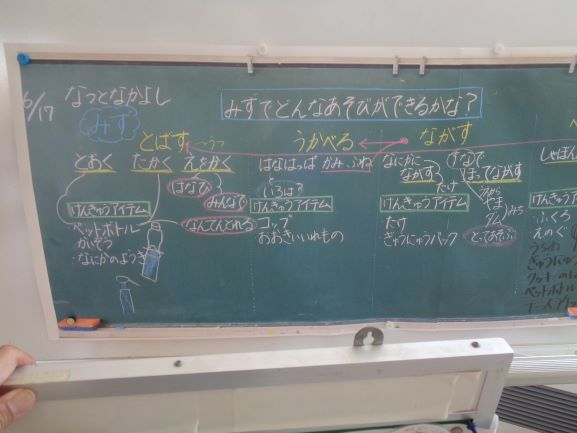 6/17
なっとなかよし
みず
みずでどんなあそびができるかな?
とばす
うかべる
ながす
とおく
たかく
えをかく
はなび
みんなで
なんてんとれる
けんきゅうアイテム
ペットボトル
かいそう
なにかのようき
はなはっぱ かみ、ふね
いろは?
けんきゅうアイテム
コップ
おおきいいれもの
なにかに
ながす
たけ
けんきゅうアイテム
たけ
ぎゅうにゅうパック
すなで
ほってながす
やま
ダム
みち
とってあそぶ
しゃぼん
けんきゅうアイテ
ふくろ
えのぐ
うちわ
ぎゅうにゅう
クッキーの
ペットボトル